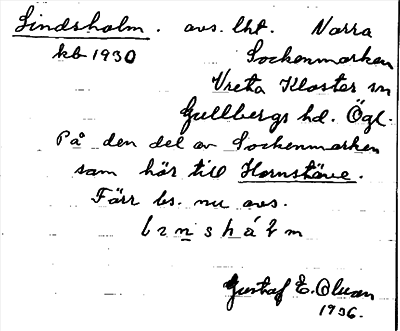 Lindsholm. avs. lht. Norra
kb 1930 Sockenmarken
Vreta Kloster sn
Gullbergs hd. Ögl.
På den del av Sockenmarken
som hör till Hornstäve.
Förr bs. nu avs.
Gustaf E. Olson
1936.